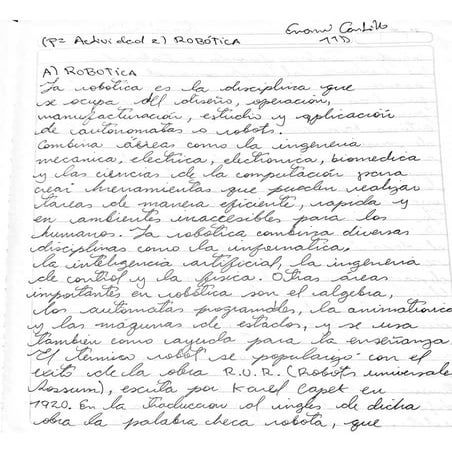 Evans Castillo
(P= Actividad 2) ROBÓTICA
11D
A) ROBOTICA
La robótica es la disciplina que
se ocupa del diseño, operación,
manufacturación, estudio y aplicación
de automatas o robots.
Combina áereas como la ingeneria
mecanica, electrica, electronica, biomedica
y las ciencias de la computación para
crear herramientas que puedan realizar
tareas de manera eficiente, rapida y
en ambientes inaccesibles para los
humanos. La robótica combina diversas
disciplinas como la informatica,
la inteligencia artificial, la ingeneria
de control y la fisica. Otras áreas
importantes en robótica son el algebra,
los automatas programables, la animatronica
y las máquinas de estados, y se usa
tambien como ayuda para la enseñanza.
El termino robot se popularizo con el
exito de la obra R.U.R. (Robots universales
Rossum), escrita por Karel Capek en
1920. En la traduccion al ingles de dicha
obra la palabra checa robota, que